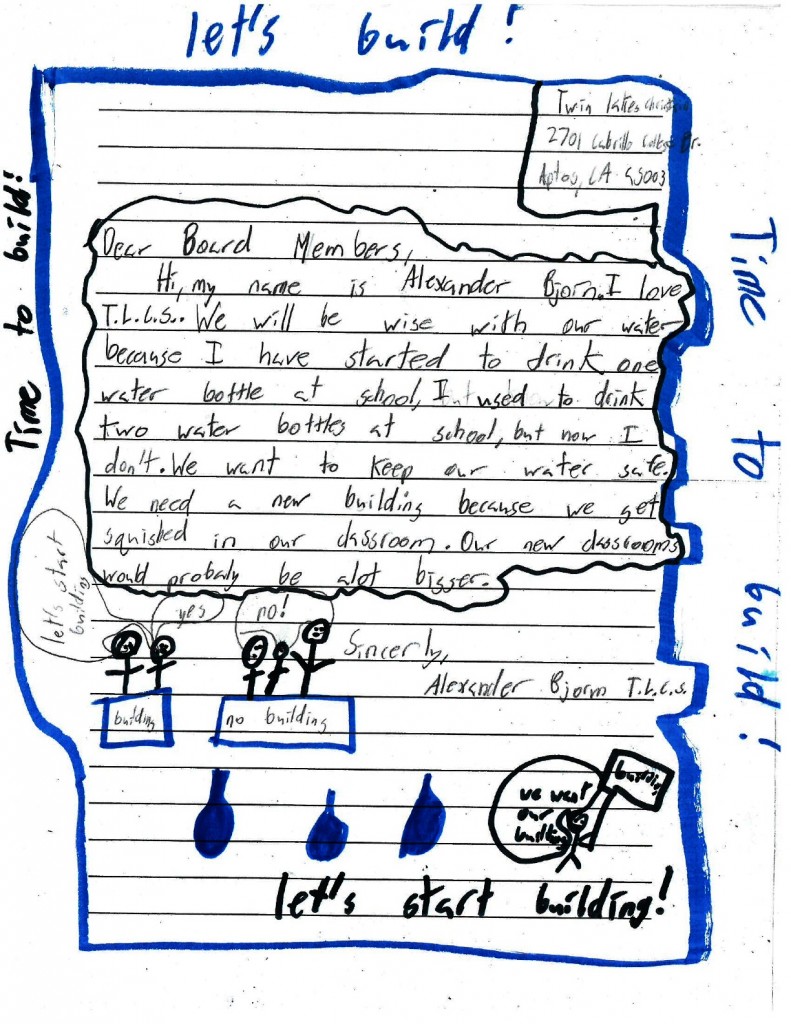 let's build!
Time to build!
Twin lakes
2701 Cabrillo College Dr.
Aptos, CA 95003
Time to build!
Dear Board Members,
Hi, my name is Alexander Bjorn. I love
T.L.C.S.. We will be wise with our water
because I have started to drink one
water bottle at school, I used to drink
two water bottles at school, but now I
don't. We want to keep our water safe.
We need a new building because we get
squished in our classroom. Our new classrooms
would probaly be alot bigger.
let's start
building
yes
no!
Sincerly,
Alexander Bjorn T.L.C.S.
building
no building
we want
our
building
building
let's start building!